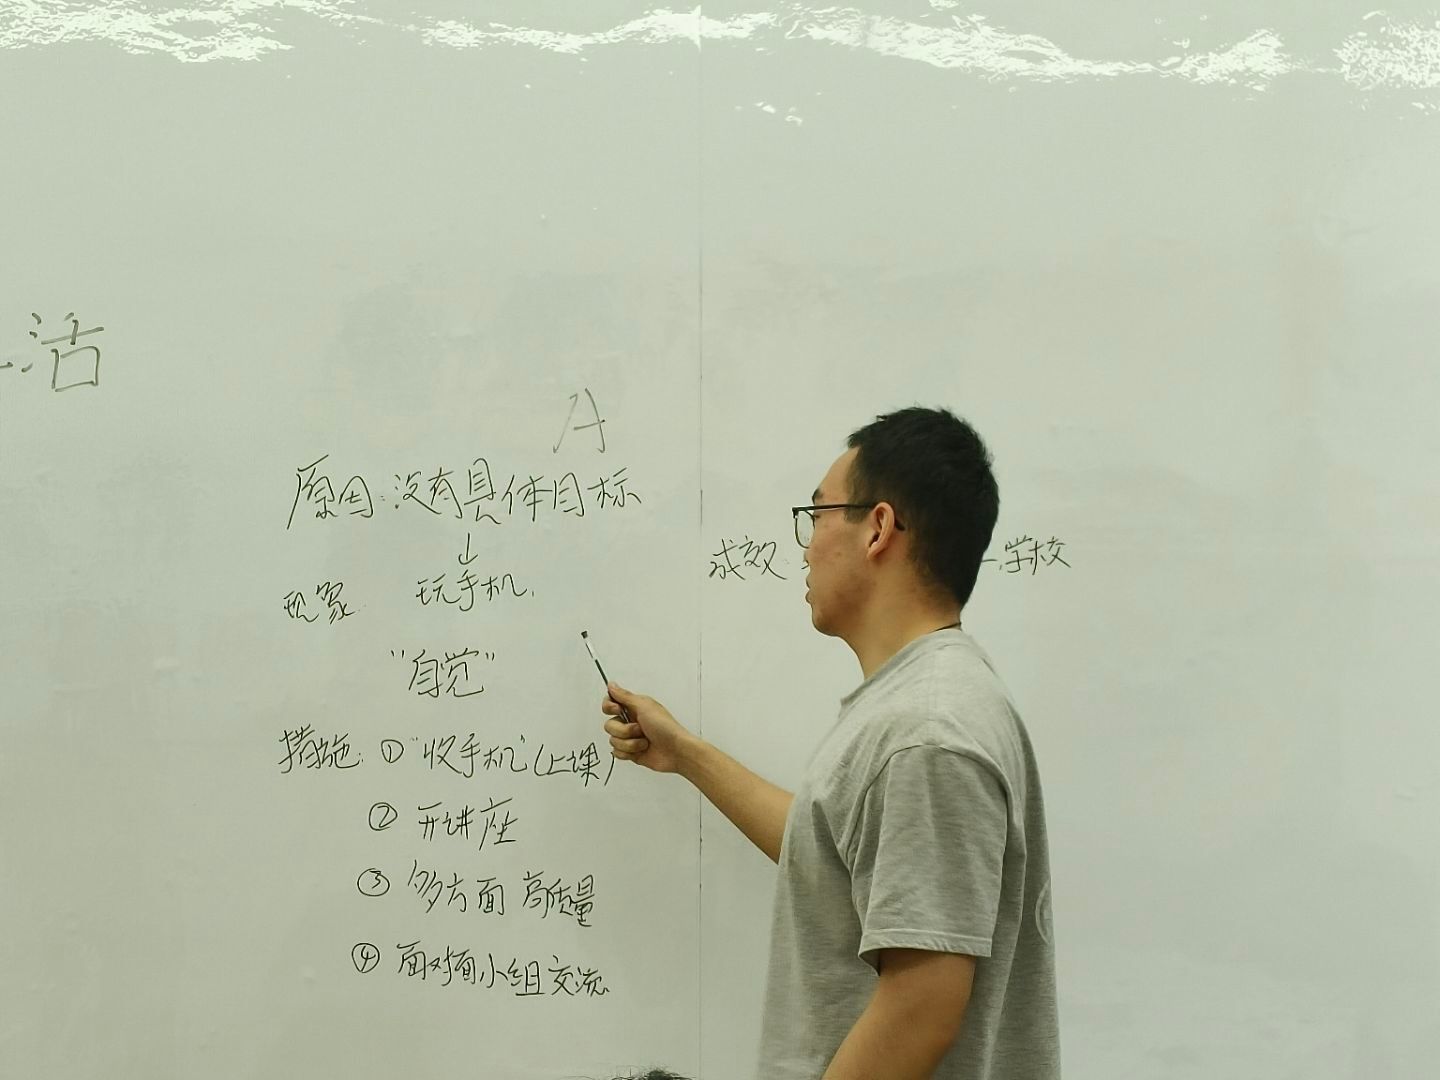 活
A
原因:没有具体目标
↓
现象: 玩手机.
"自觉"
措施: ① "收手机"(上课)
② 开讲座
③ 多方面 高质量
④ 面对面小组交流
成效:
学校